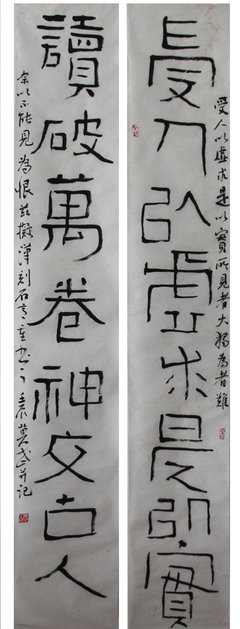 受人以虛求是以實所見者大獨為者難
受人以虛求是以實
讀破萬卷神交古人
余以不能見為恨茲擬漢刻石并記